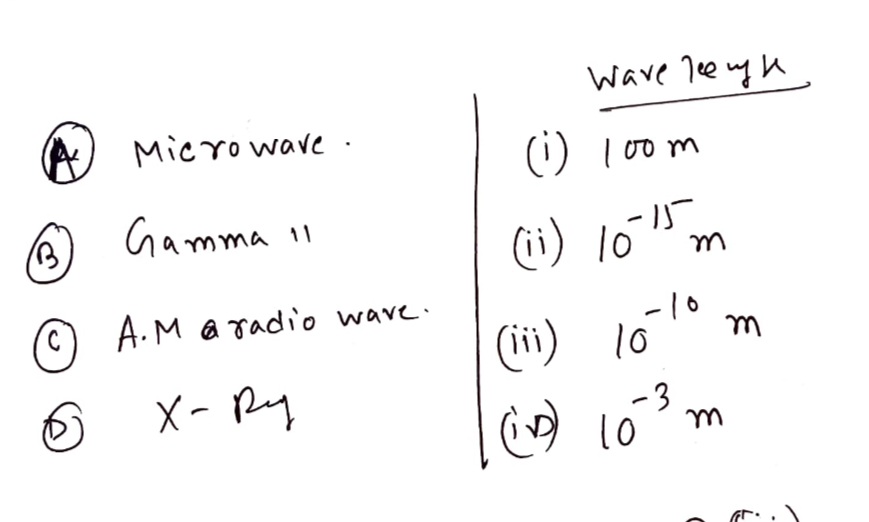 Wave leengh
(A) Microwave. (i) 100 m
(B) Gamma " (ii) 10^-15 m
(C) A.M radio wave. (iii) 10^-10 m
(D) X- Ray (iv) 10^-3 m